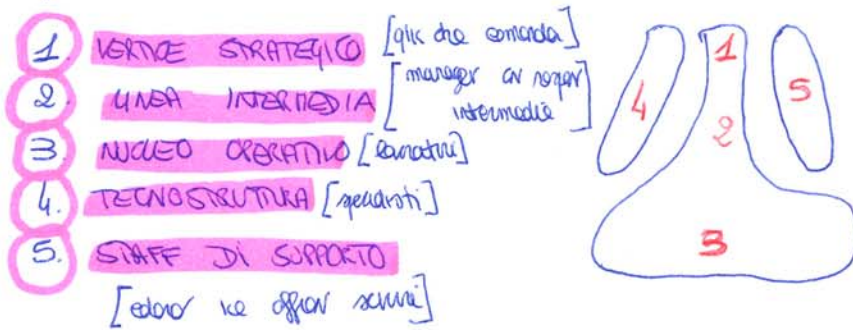 1 VERTICE STRATEGICO [che comanda]
2. LINEA INTERMEDIA [manager
intermedie]
3. NUCLEO OPERATIVO [lavoratori]
4. TECNOSTRUTTURA [specialisti]
5. STAFF DI SUPPORTO
[coloro che offrono servizi]
4 1 5
2
3